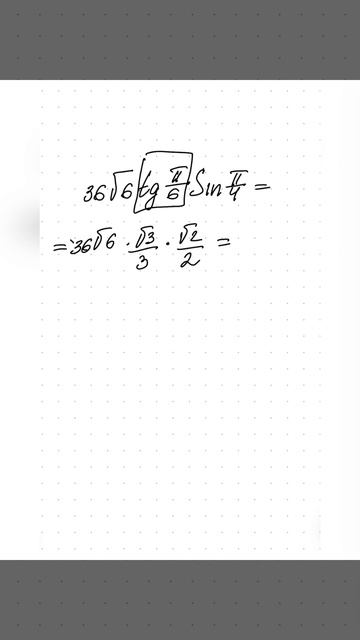 36√6 tg π/6 · Sin π/4 =
= 36√6 · √3/3 · √2/2 =